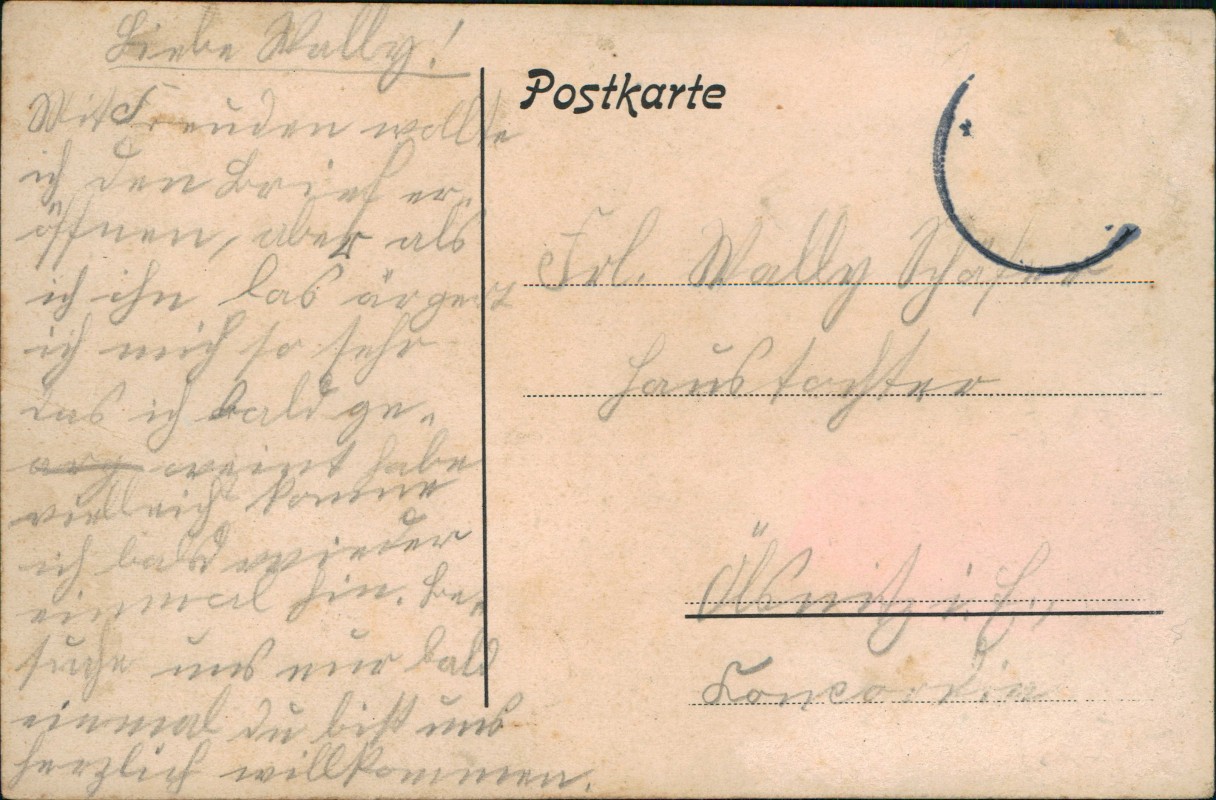 Liebe Wally!
Mit Freuden wollte
ich den Brief er-
öffnen, aber als
ich ihn las ärgert
ich mich so sehr
das ich bald ge-
weint habe
vielleicht komme
ich bald wieder
einmal hin. Be-
suche uns nur bald
einmal du bist uns
herzlich willkommen.
Postkarte
Frl. Wally Schäfer
Haustochter
Ölsnitz i. E.
Concordia